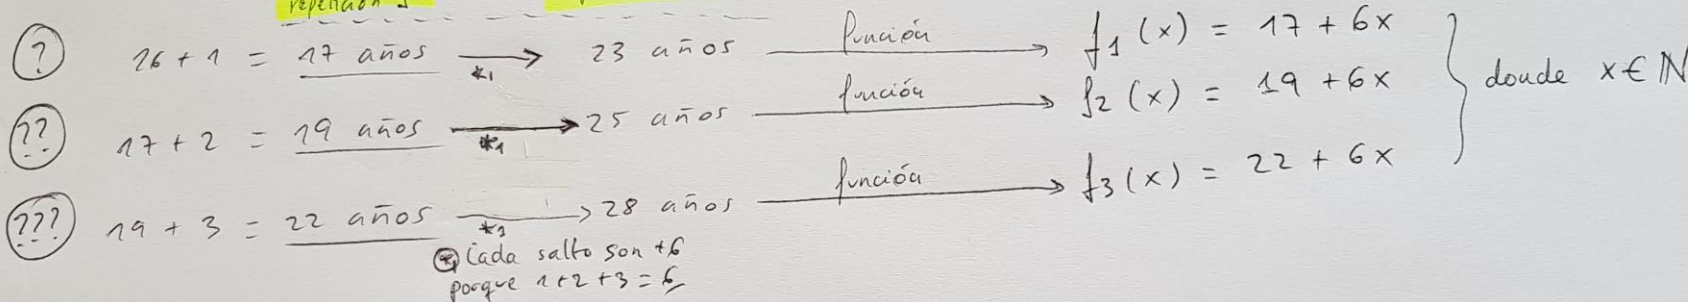 repetición
? 16 + 1 = 17 años *1 → 23 años función → f1 (x) = 17 + 6x
?? 17 + 2 = 19 años *1 → 25 años función → f2 (x) = 19 + 6x
donde x ∈ ℕ
??? 19 + 3 = 22 años *1 → 28 años función → f3 (x) = 22 + 6x
*1 Cada salto son +6
porque 1+2+3 = 6